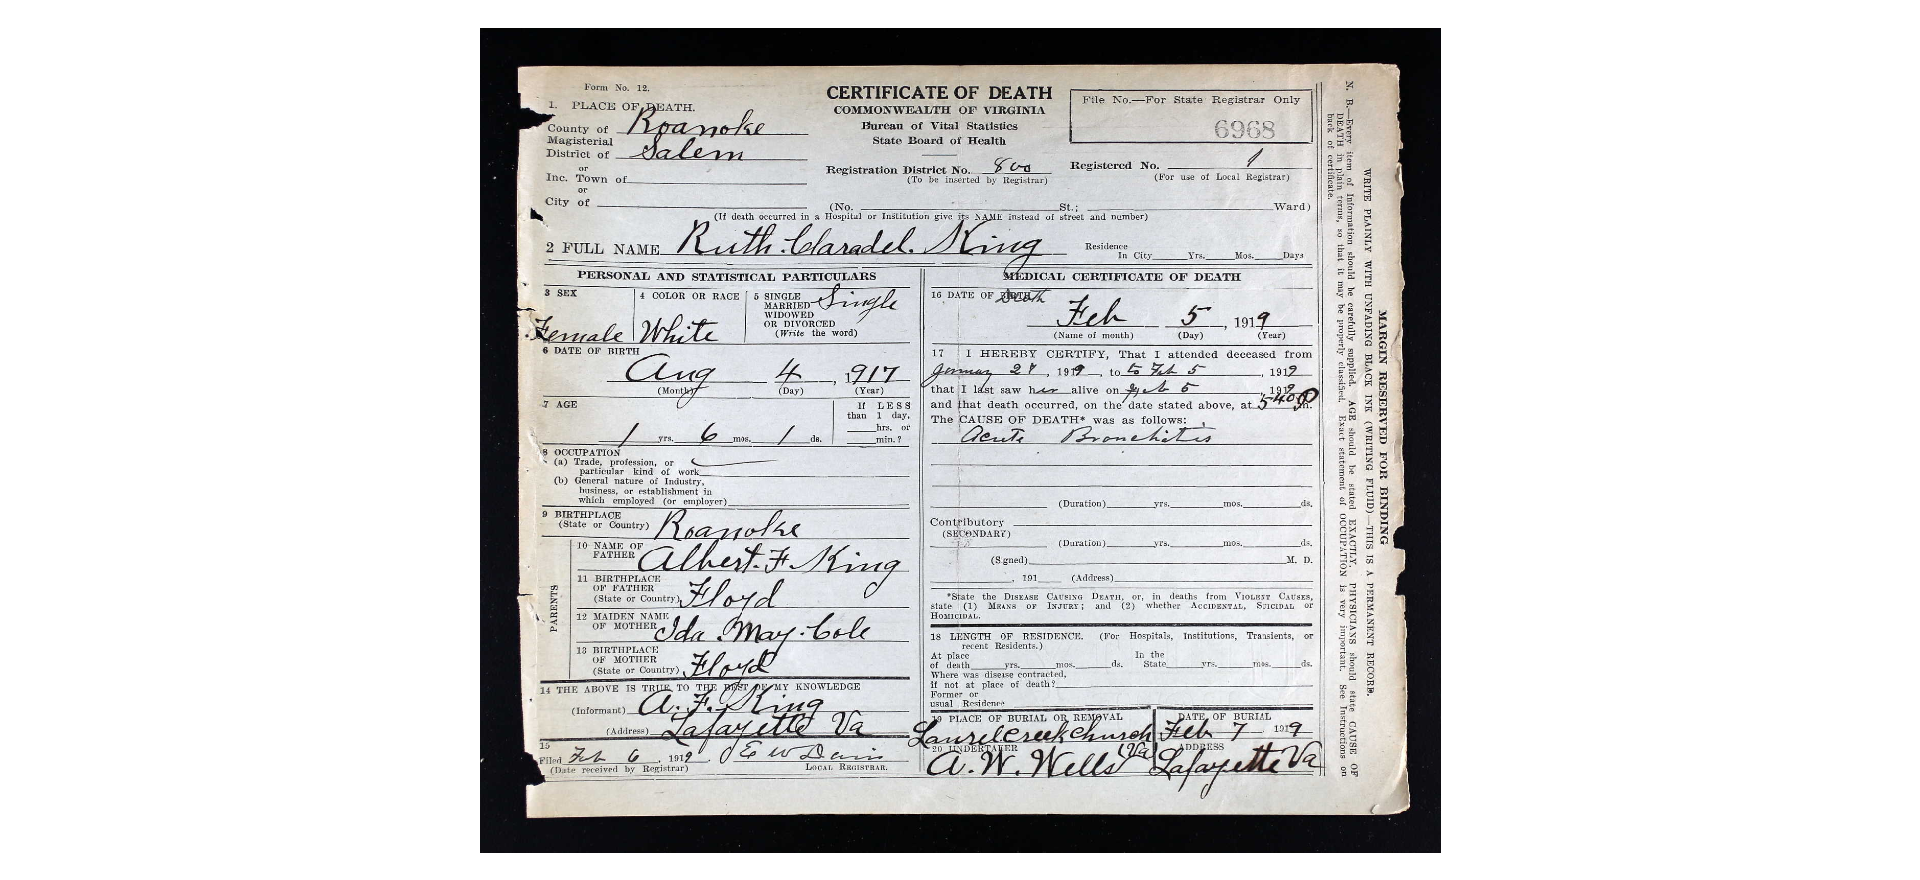 Form No. 12.
1. PLACE OF DEATH.
County of Roanoke
Magisterial
District of Salem
or
Inc. Town of
or
City of
CERTIFICATE OF DEATH
COMMONWEALTH OF VIRGINIA
Bureau of Vital Statistics
State Board of Health
Registration District No. 800
(To be inserted by Registrar)
File No.—For State Registrar Only
6968
Registered No. 1
(For use of Local Registrar)
(No. St.; Ward)
(If death occurred in a Hospital or Institution give its NAME instead of street and number)
2 FULL NAME Ruth Claradel King
Residence
In City Yrs. Mos. Days
PERSONAL AND STATISTICAL PARTICULARS
3 SEX
Female
4 COLOR OR RACE
White
5 SINGLE
MARRIED
WIDOWED
OR DIVORCED
(Write the word)
Single
6 DATE OF BIRTH
Aug 4, 1917
(Month) (Day) (Year)
7 AGE
1 yrs. 6 mos. 1 ds.
If LESS
than 1 day,
hrs. or
min.?
8 OCCUPATION
(a) Trade, profession, or
particular kind of work
(b) General nature of Industry,
business, or establishment in
which employed (or employer)
9 BIRTHPLACE
(State or Country) Roanoke
PARENTS
10 NAME OF
FATHER Albert F. King
11 BIRTHPLACE
OF FATHER
(State or Country) Floyd
12 MAIDEN NAME
OF MOTHER Ida May Cole
13 BIRTHPLACE
OF MOTHER
(State or Country) Floyd
14 THE ABOVE IS TRUE TO THE BEST OF MY KNOWLEDGE
(Informant) A. F. King
(Address) Lafayette Va
15
Filed Feb 6, 1919. E W Davis
(Date received by Registrar) LOCAL REGISTRAR.
MEDICAL CERTIFICATE OF DEATH
16 DATE OF Death
Feb 5, 1919
(Name of month) (Day) (Year)
17 I HEREBY CERTIFY, That I attended deceased from
January 27, 1919, to to Feb 5, 1919
that I last saw her alive on Feb 5, 1919
and that death occurred, on the date stated above, at 5 40 P m.
The CAUSE OF DEATH* was as follows:
Acute Bronchitis
(Duration) yrs. mos. ds.
Contributory
(SECONDARY)
(Duration) yrs. mos. ds.
(Signed) M. D.
, 191 (Address)
*State the DISEASE CAUSING DEATH, or, in deaths from VIOLENT CAUSES,
state (1) MEANS OF INJURY; and (2) whether ACCIDENTAL, SUICIDAL or
HOMICIDAL.
18 LENGTH OF RESIDENCE. (For Hospitals, Institutions, Transients, or
recent Residents.)
At place In the
of death yrs. mos. ds. State yrs. mos. ds.
Where was disease contracted,
if not at place of death?
Former or
usual Residence
19 PLACE OF BURIAL OR REMOVAL
Laurel Creek Church Va
DATE OF BURIAL
Feb 7 1919
20 UNDERTAKER
A. W. Wells
ADDRESS
Lafayette Va
MARGIN RESERVED FOR BINDING
WRITE PLAINLY WITH UNFADING BLACK INK (WRITING FLUID)—THIS IS A PERMANENT RECORD.
N. B.—Every item of Information should be carefully supplied. AGE should be stated EXACTLY. PHYSICIANS should state CAUSE OF
DEATH in plain terms, so that it may be properly classified. Exact statement of OCCUPATION is very important. See Instructions on
back of certificate.